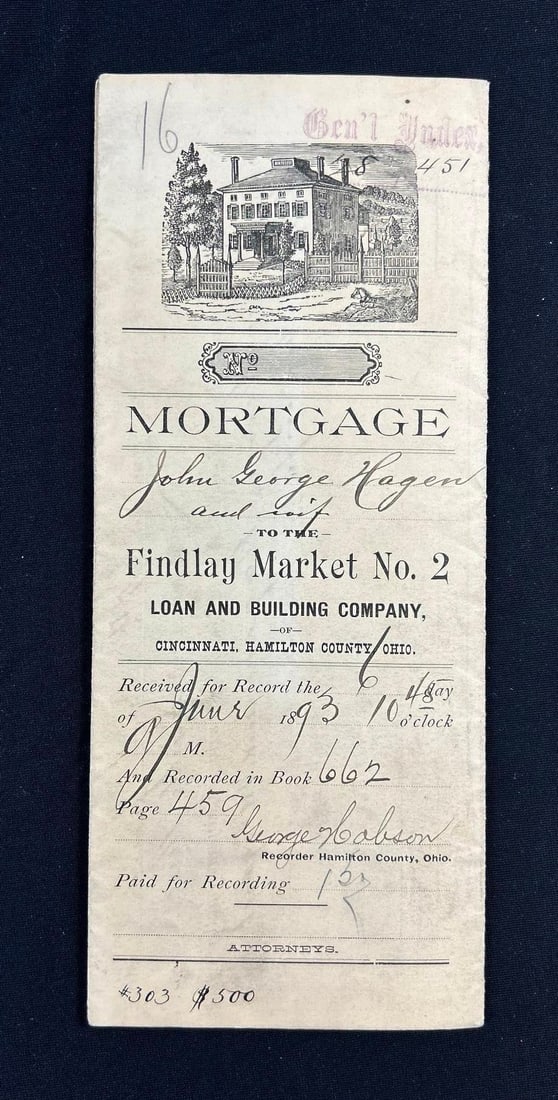 16
Gen'l Index,
48 451
No
MORTGAGE
John George Hagen
and wif
—TO THE—
Findlay Market No. 2
LOAN AND BUILDING COMPANY,
—OF—
CINCINNATI, HAMILTON COUNTY, OHIO.
Received for Record the 6 day
of June 1893 10 48 o'clock
A M.
And Recorded in Book 662
Page 459
George Hobson
Recorder Hamilton County, Ohio.
Paid for Recording
ATTORNEYS.
#303 $500